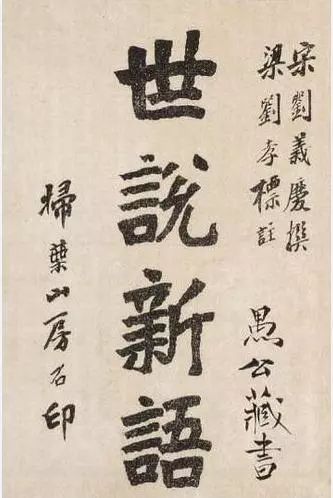 宋劉義慶撰
梁劉孝標註
愚公藏書
世説新語
掃葉山房石印